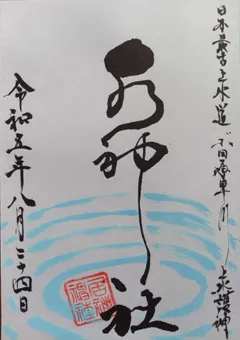 日本最古上水道 小田原早川上水
水神社
令和五年八月二十四日
居神神社